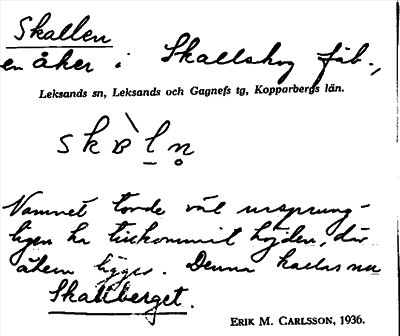 Skallen
en åker i Skallskog fäb.,
Leksands sn, Leksands och Gagnefs tg, Kopparbergs län.
skɒ̀l̠n̥
Namnet torde väl ursprung-
ligen ha tillkommit höjden, där
åkern ligger. Denna kallas nu
Skallberget.
ERIK M. CARLSSON, 1936.